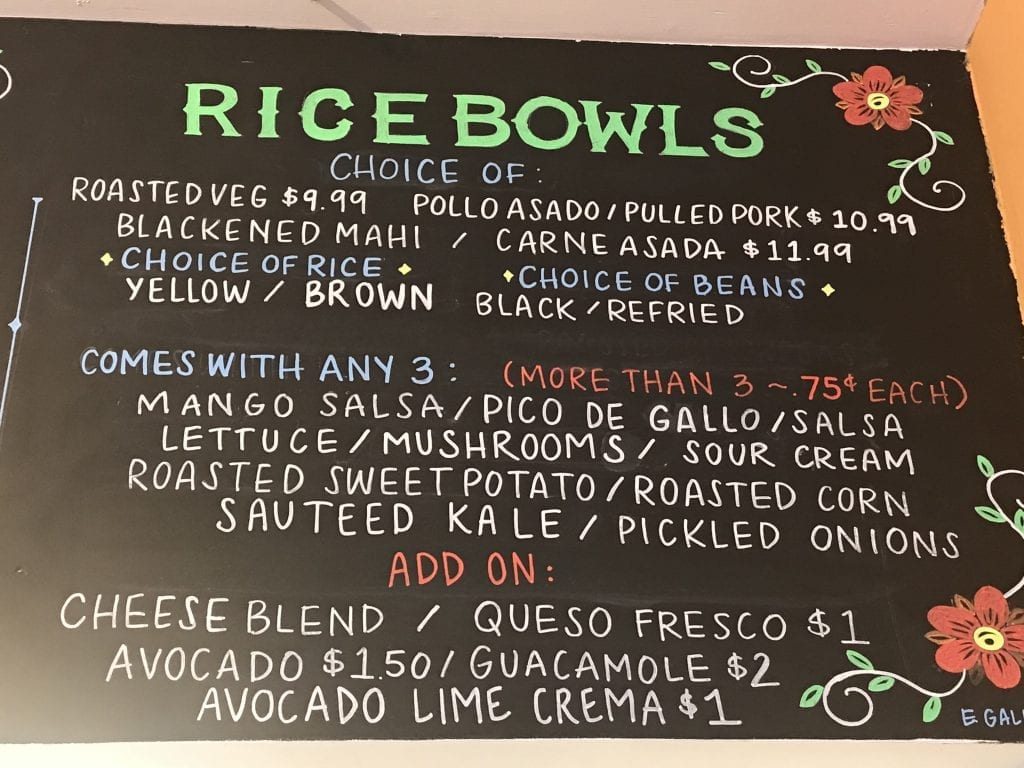 RICE BOWLS
CHOICE OF:
ROASTED VEG $9.99 POLLO ASADO/PULLED PORK $10.99
BLACKENED MAHI / CARNE ASADA $11.99
CHOICE OF RICE CHOICE OF BEANS
YELLOW / BROWN BLACK/REFRIED
COMES WITH ANY 3: (MORE THAN 3 ~.75¢ EACH)
MANGO SALSA/PICO DE GALLO/SALSA
LETTUCE/MUSHROOMS/ SOUR CREAM
ROASTED SWEET POTATO/ROASTED CORN
SAUTEED KALE / PICKLED ONIONS
ADD ON:
CHEESE BLEND / QUESO FRESCO $1
AVOCADO $1.50/GUACAMOLE $2
AVOCADO LIME CREMA $1